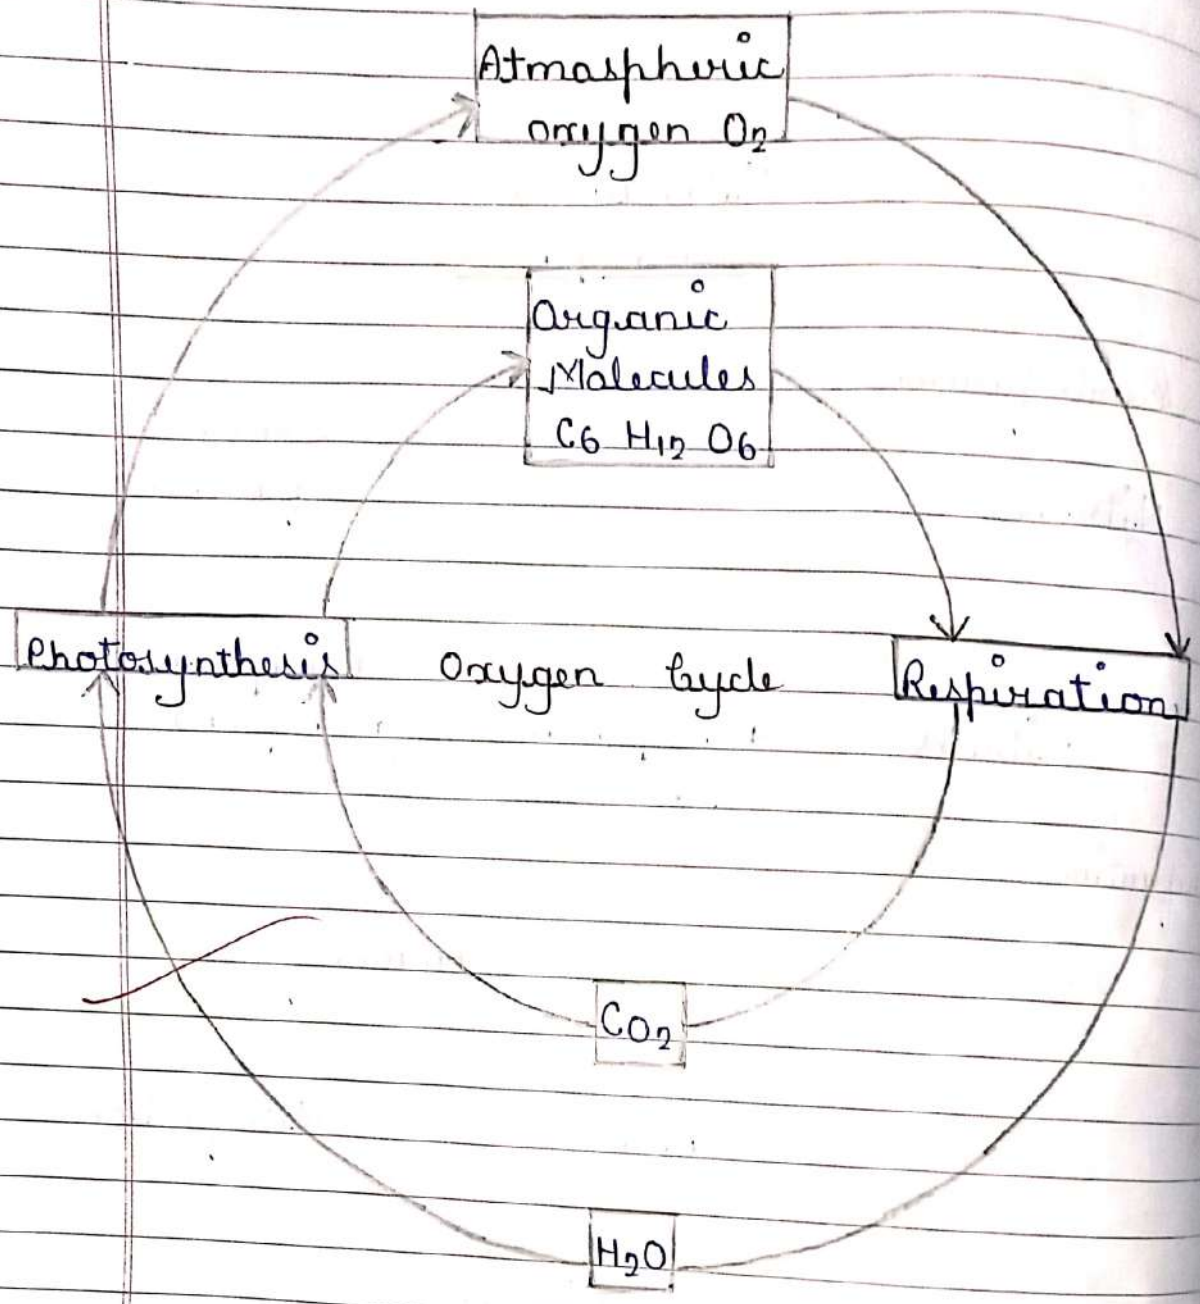 Atmospheric
oxygen O2
Organic
Molecules
C6 H12 O6
Photosynthesis
Oxygen Cycle
Respiration
CO2
H2O